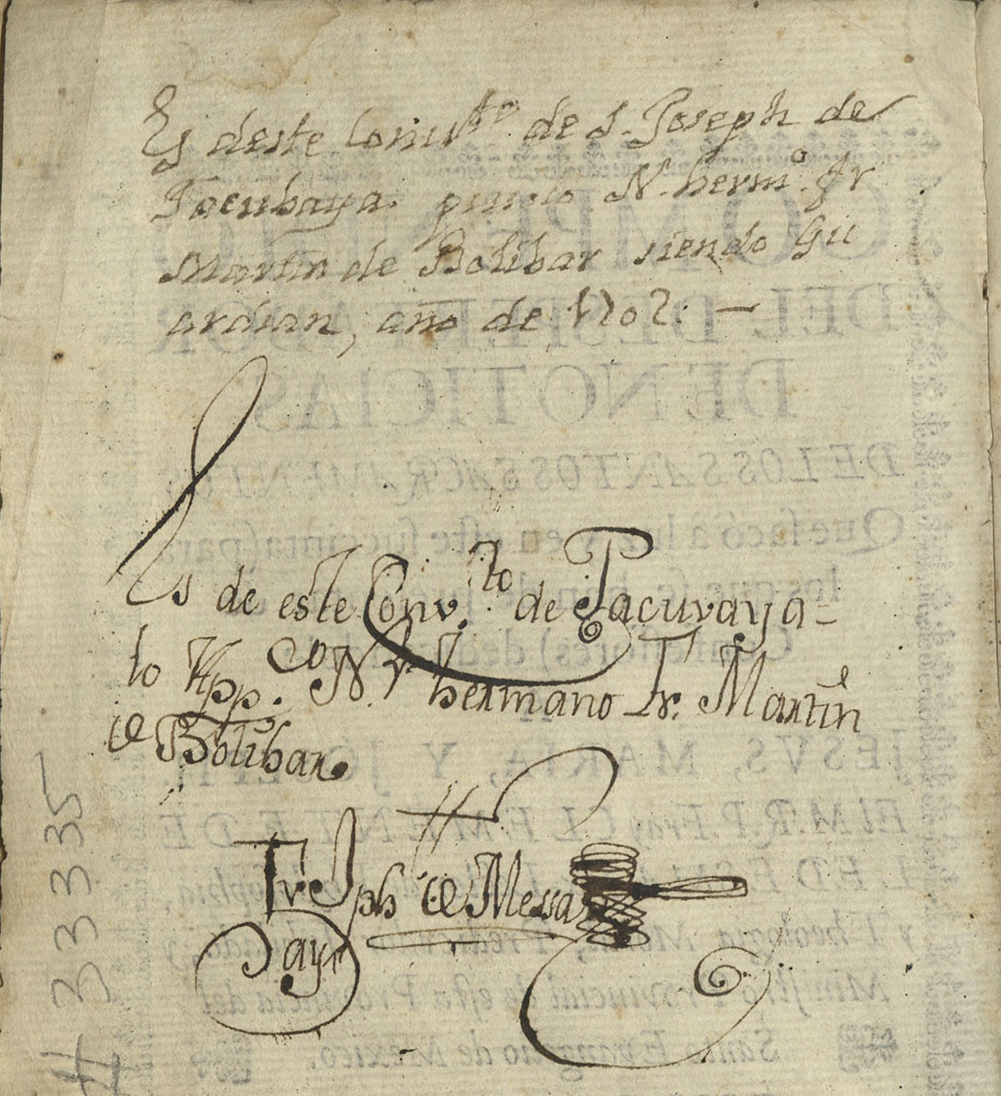 Es deste Conv.to de S. Joseph de
Tacubaya. N. herm.o fr
Martin de Bolibar siendo Gu
ardian, año de 1702. —
Es de este Conv.to de Tacuvaya -
lo N.r hermano Fr. Martin
de Bolibar
Fr Jph de Messa
# 33335
COMPENDIO
DEL DESPERTADOR
DE NOTICIAS
DE LOS SANTOS SACRAMENTOS
Que sacó a luz, y en este sucinta (para
los que
Confessores) dedica
A
JESVS, MARIA, Y JOSEPH
El M.R.P. Fray CLEMENTE DE
LEDESMA,
Theologia,
Ministro Provincial de esta Provincia del
Santo Evangelio de Mexico.